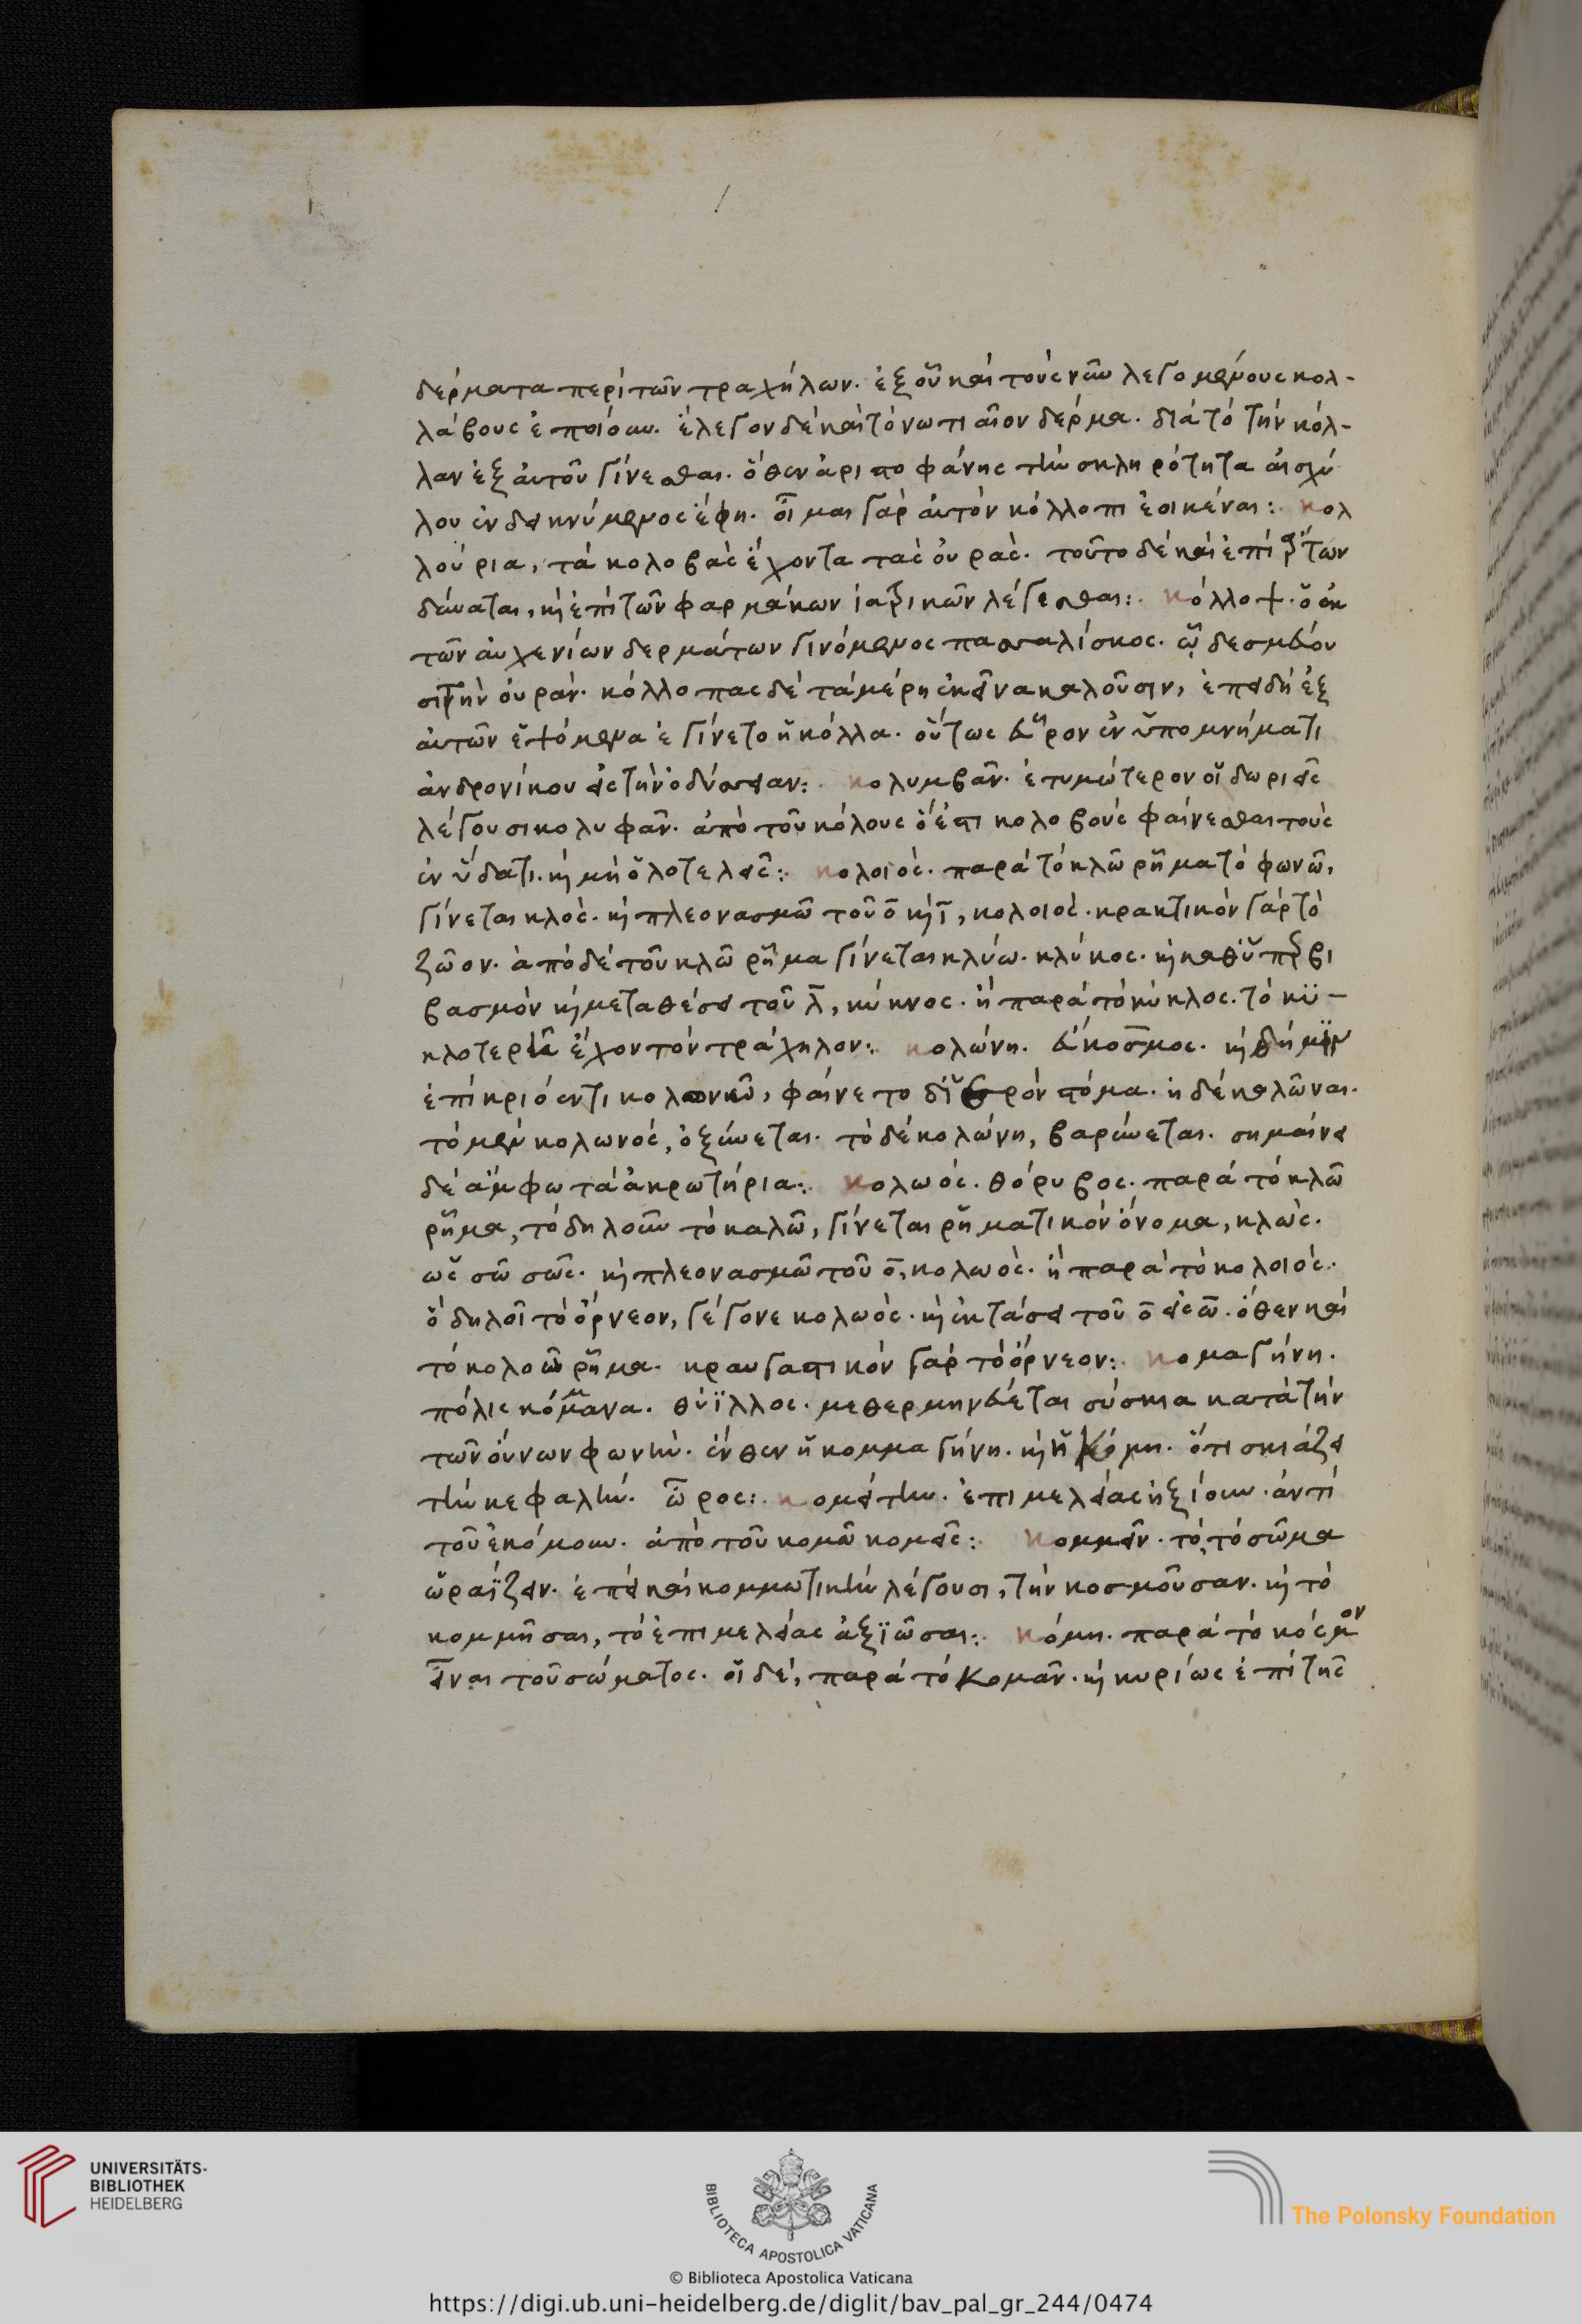 δέρματα περὶ τῶν τραχήλων. ἐξ οὗ καὶ τοὺς νῦν λεγομένους κολ-
λάβους ἐποίουν. ἔλεγον δὲ καὶ τὸ νωτιαῖον δέρμα. διὰ τὸ τὴν κόλ-
λαν ἐξ αὐτοῦ γίνεσθαι. ὅθεν ἀριστοφάνης τὴν σκληρότητα αἰσχύ
λου ἐνδεικνύμενος ἔφη. οἶμαι γὰρ αὐτὸν κόλλοπι ἐοικέναι:. κολ
λούρια, τὰ κολοβὰς ἔχοντα τὰς οὐράς. τοῦτο δὲ καὶ ἐπὶ
δύναται, καὶ ἐπὶ τῶν φαρμάκων ἰατρικῶν λέγεσθαι:. κόλλοψ. ὁ ἐκ
τῶν αὐχενίων δερμάτων γινόμενος πασσαλίσκος. ᾧ δεσμεύου
σι τὴν οὐράν. κόλλοπας δὲ τὰ μέρη ἐκεῖνα καλοῦσιν, ἐπειδὴ ἐξ
αὐτῶν ἑψόμενα ἐγίνετο ἡ κόλλα. οὕτως εὗρον ἐν ὑπομνήματι
ἀνδρονίκου εἰς τὴν ὀδύσσειαν:. κολυμβᾶν. ἐτυμώτερον οἱ δωριεῖς
λέγουσι κολυφᾶν. ἀπὸ τοῦ κόλους ὅ ἐστι κολοβοὺς φαίνεσθαι τοὺς
ἐν ὕδατι. καὶ μὴ ὁλοτελεῖς:. κολοιός. παρὰ τὸ κλῶ ῥῆμα τὸ φωνῶ,
γίνεται κλός. καὶ πλεονασμῶ τοῦ ο καὶ ι, κολοιός. κρακτικὸν γὰρ τὸ
ζῶον. ἀπὸ δὲ τοῦ κλῶ ῥῆμα γίνεται κλύω. κλύκος. καὶ καθ' ὑπερβι
βασμὸν καὶ μεταθέσει τοῦ λ, κύκνος. ἢ παρὰ τὸ κύκλος. τὸ κυ-
κλοτερῆ ἔχον τὸν τράχηλον:. κολώνη. εὔκοσμος.
ἐπικριόεντι κολωνῶ, φαίνετο στόμα. ἡ δὲ καλῶναι.
τὸ μὲν κολωνός, ὀξύνεται. τὸ δὲ κολώνη, βαρύνεται. σημαίνει
δὲ ἄμφω τὰ ἀκρωτήρια:. κολωός. θόρυβος. παρὰ τὸ κλῶ
ῥῆμα, τὸ δηλοῦν τὸ καλῶ, γίνεται ῥηματικὸν ὄνομα, κλώς.
ὡς σῶ σῶς. καὶ πλεονασμῶ τοῦ ο, κολωός. ἢ παρὰ τὸ κολοιός.
ὃ δηλοῖ τὸ ὄρνεον, γέγονε κολωός. καὶ ἐκτάσει τοῦ ο εἰς ω. ὅθεν καὶ
τὸ κολοιῶ ῥῆμα. κραυγαστικὸν γὰρ τὸ ὄρνεον:. κομαγήνη.
πόλις κόμμανα. θύϊλλος. μεθερμηνεύεται σύσκια κατὰ τὴν
τῶν οὔννων φωνήν. ἔνθεν ἡ κομμαγήνη. καὶ ἡ κόμη. ὅτι σκιάζει
τὴν κεφαλήν. ὦρος:. κομείτην. ἐπιμελείας ἠξίουν. ἀντὶ
τοῦ ἐκόμουν. ἀπὸ τοῦ κομῶ κομεῖς:. κομμεῖν. τὸ, τὸ σῶμα
ὡραΐζειν. ἐπεὶ καὶ κομμωτικὴν λέγουσι, τὴν κοσμοῦσαν. καὶ τὸ
κομμῆσαι, τὸ ἐπιμελείας ἀξιῶσαι:. κόμη. παρὰ τὸ κόσμον
εἶναι τοῦ σώματος. οἱ δὲ, παρὰ τὸ κομᾶν. καὶ κυρίως ἐπὶ τῆς
UNIVERSITÄTS-
BIBLIOTHEK
HEIDELBERG
BIBLIOTECA APOSTOLICA VATICANA
The Polonsky Foundation
© Biblioteca Apostolica Vaticana
https://digi.ub.uni-heidelberg.de/diglit/bav_pal_gr_244/0474